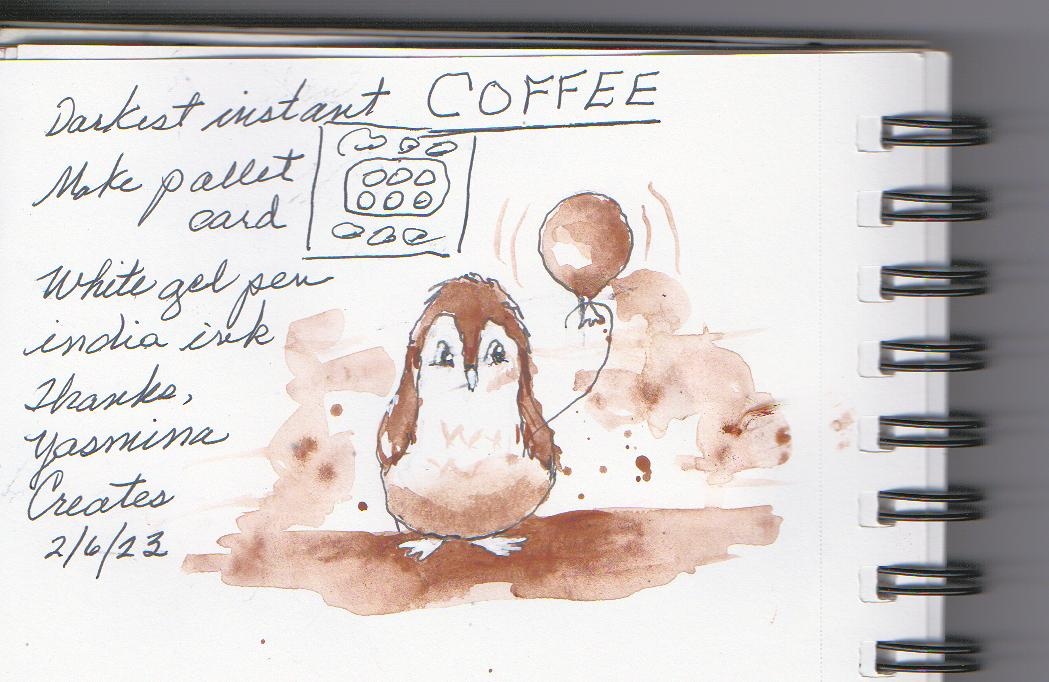 Darkest instant COFFEE
Make pallet
card
White gel pen
india ink
Thanks,
Yasmina
Creates
2/6/23